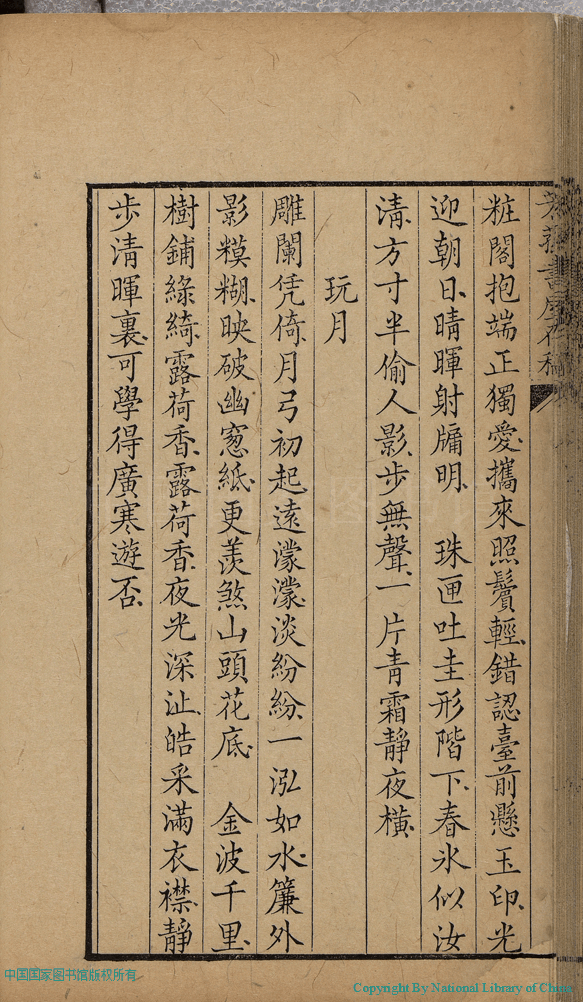 粧閣抱端正獨愛攜來照鬢輕錯認臺前懸玉印光
迎朝日晴暉射牖明　珠匣吐圭形階下春氷似汝
清方寸半偷人影步無聲一片青霜靜夜橫
玩月
雕闌凭倚月弓初起遠濛濛淡紛紛一泓如水簾外
影糢糊映破幽窻紙更羨煞山頭花底　金波千里
樹鋪綠綺露荷香露荷香夜光深沚皓采滿衣襟靜
步清暉裏可學得廣寒遊否
中国国家图书馆版权所有
Copyright By National Library of China